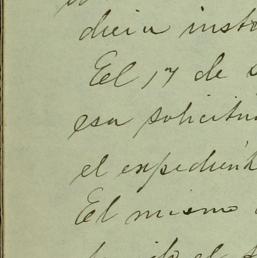 dicia insta
El 17 de
esa solicitu
el expedient
El mismo